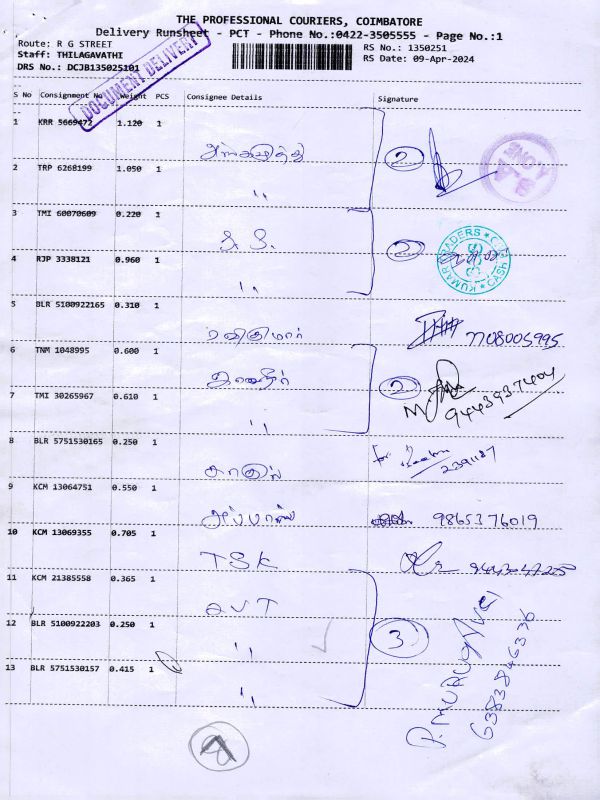 THE PROFESSIONAL COURIERS, COIMBATORE
Delivery Runsheet - PCT - Phone No.:0422-3505555 - Page No.:1
Route: R G STREET
RS No.: 1350251
Staff: THILAGAVATHI
RS Date: 09-Apr-2024
DRS No.: DCJB135025101
DOCUMENT DELIVERY
S No Consignment No Weight PCS Consignee Details Signature
1 KRR 5669472 1.120 1
2
2 TRP 6268199 1.050 1
,,
3 TMI 60070609 0.220 1
S. S.
2
KUMAR TRADERS CASH
4 RJP 3338121 0.960 1
,,
5 BLR 5100922165 0.310 1
ரவிகுமார் 7708005995
6 TNM 1048995 0.600 1
2
9443937404
7 TMI 30265967 0.610 1
,,
8 BLR 5751530165 0.250 1
for 2391187
9 KCM 13064751 0.550 1
அப்பாஸ் 9865376019
10 KCM 13069355 0.705 1
TSK
11 KCM 21385558 0.365 1
AVT
12 BLR 5100922203 0.250 1
,,
3
13 BLR 5751530157 0.415 1
,,
P. MURUGAVEL
6383846336